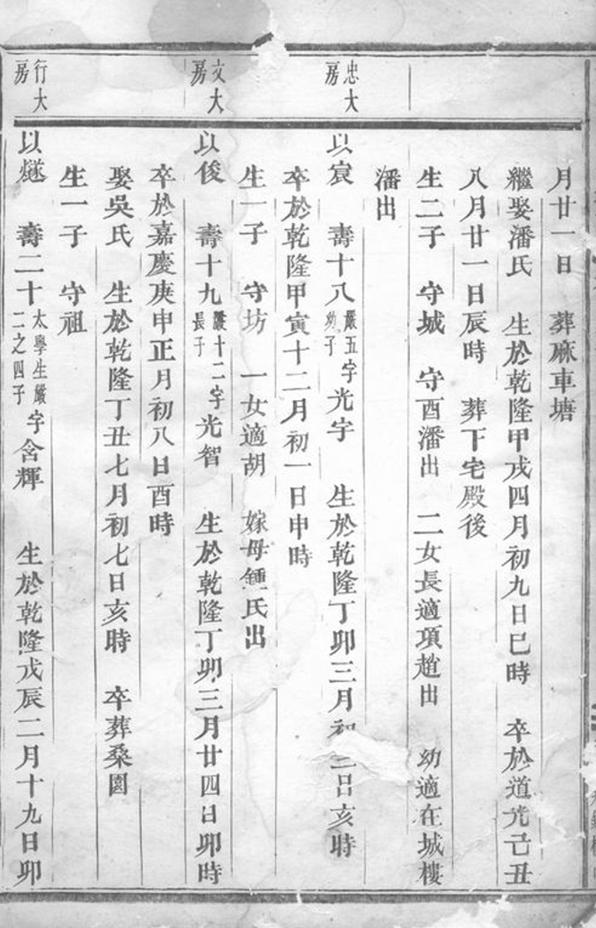 月廿一日 葬麻車塘
繼娶潘氏 生於乾隆甲戌四月初九日巳時 卒於道光己丑
八月廿一日辰時 葬下宅殿後
生二子 守城 守酉潘出 二女長適項趙出 幼適在城樓
潘出
忠大房
以宸 壽十八 嚴五幼子 字光宇 生於乾隆丁卯三月初二日亥時
卒於乾隆甲寅十二月初一日申時
生一子 守坊 一女適胡 嫁母鍾氏出
文大房
以俊 壽十九 嚴十二長子 字光智 生於乾隆丁卯三月廿四日卯時
卒於嘉慶庚申正月初八日酉時
娶吳氏 生於乾隆丁丑七月初七日亥時 卒葬桑園
生一子 守祖
行大房
以燧 壽二十 太學生嚴二之四子 字含輝 生於乾隆戊辰二月十九日卯